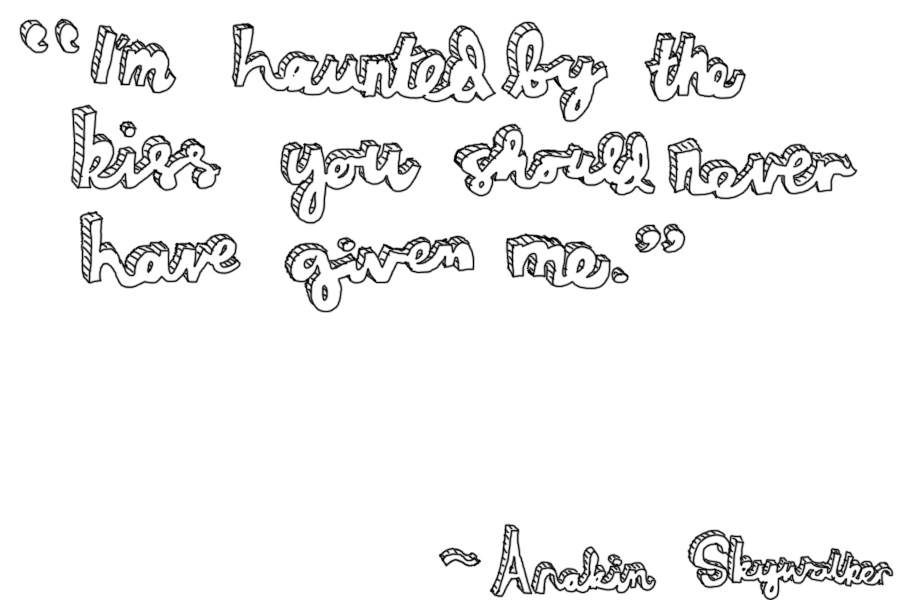 “I'm haunted by the
kiss you should never
have given me.”
~ Anakin Skywalker